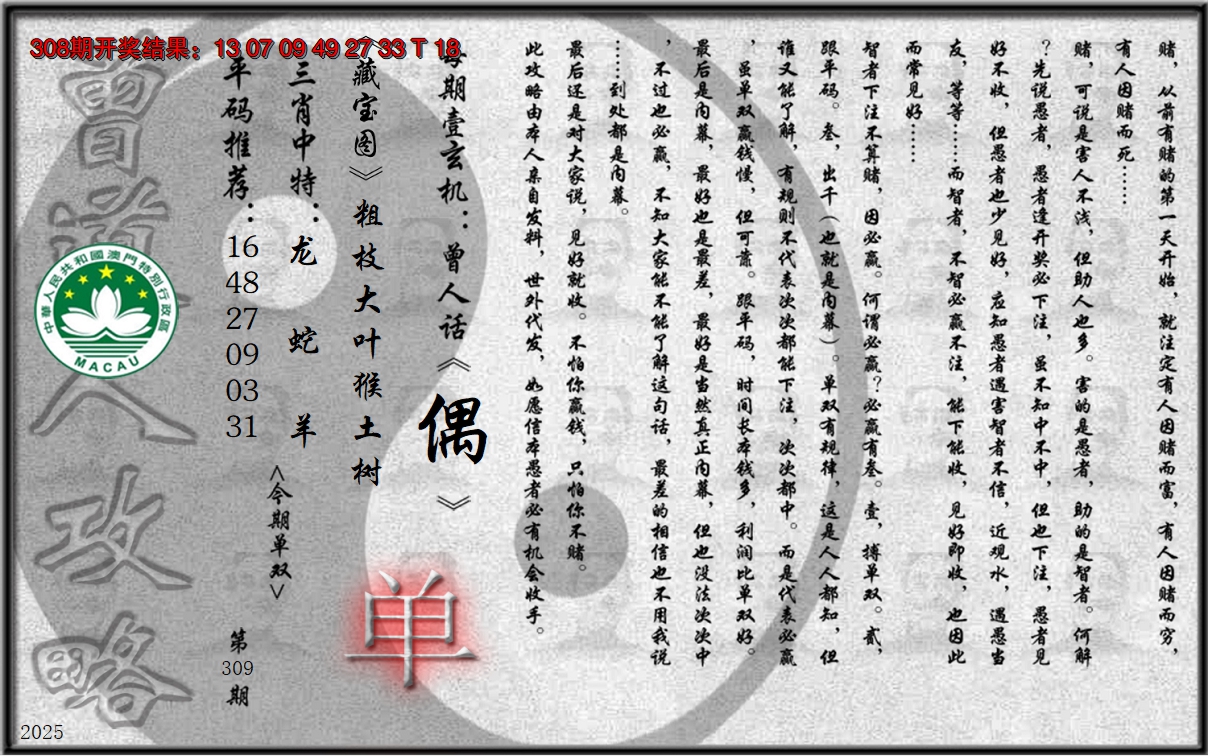 308期开奖结果：13 07 09 49 27 33 T 18
赌，从前有赌的第一天开始，就注定有人因赌而富，有人因赌而穷，
有人因赌而死……
赌，可说是害人不浅，但助人也多。害的是愚者，助的是智者。何解
？先说愚者，愚者逢开奖必下注，虽不知中不中，但也下注，愚者见
好不收，但愚者也少见好，应知愚者遇害智者不信，近观水，遇愚当
友，等等……而智者，不智必赢不注，能下能收，见好即收，也因此
而常见好……
智者下注不算赌，因必赢。何谓必赢？必赢有叁。壹，搏单双。贰，
跟平码。叁，出千（也就是内幕）。单双有规律，这是人人都知，但
谁又能了解，有规则不代表次次都能下注，次次都中。而是代表必赢
，虽单双赢钱慢，但可靠。跟平码，时间长本钱多，利润比单双好。
最后是内幕，最好也是最差，最好是当然真正内幕，但也没法次次中
，不过也必赢，不知大家能不能了解这句话，最差的相信也不用我说
……到处都是内幕。
最后还是对大家说，见好就收。不怕你赢钱，只怕你不赌。
此攻略由本人亲自发料，世外代发，如愿信本愚者必有机会收手。
每期壹玄机：曾人话《偶》
《藏宝图》粗枝大叶猴土树
单
三肖中特：龙 蛇 羊
<今期单双>
平码推荐：16 48 27 09 03 31
第309期
曾道人攻略
中華人民共和國澳門特別行政區
MACAU
2025